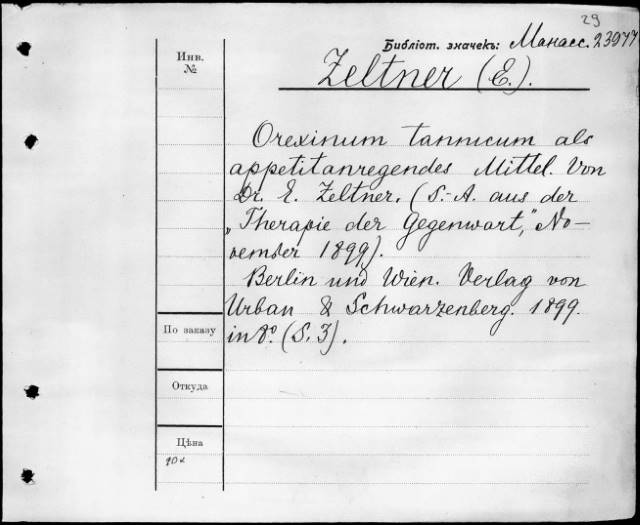 29
Библiот. значекъ: Манасс. 23977
Инв.
№
Zeltner (E.).
Orexinum tannicum als
appetitanregendes Mittel. Von
Dr. E. Zeltner. (S.-A. aus der
„Therapie der Gegenwart," No-
vember 1899).
Berlin und Wien. Verlag von
Urban & Schwarzenberg. 1899.
in 8º. (S. 3).
По заказу
Откуда
Цѣна